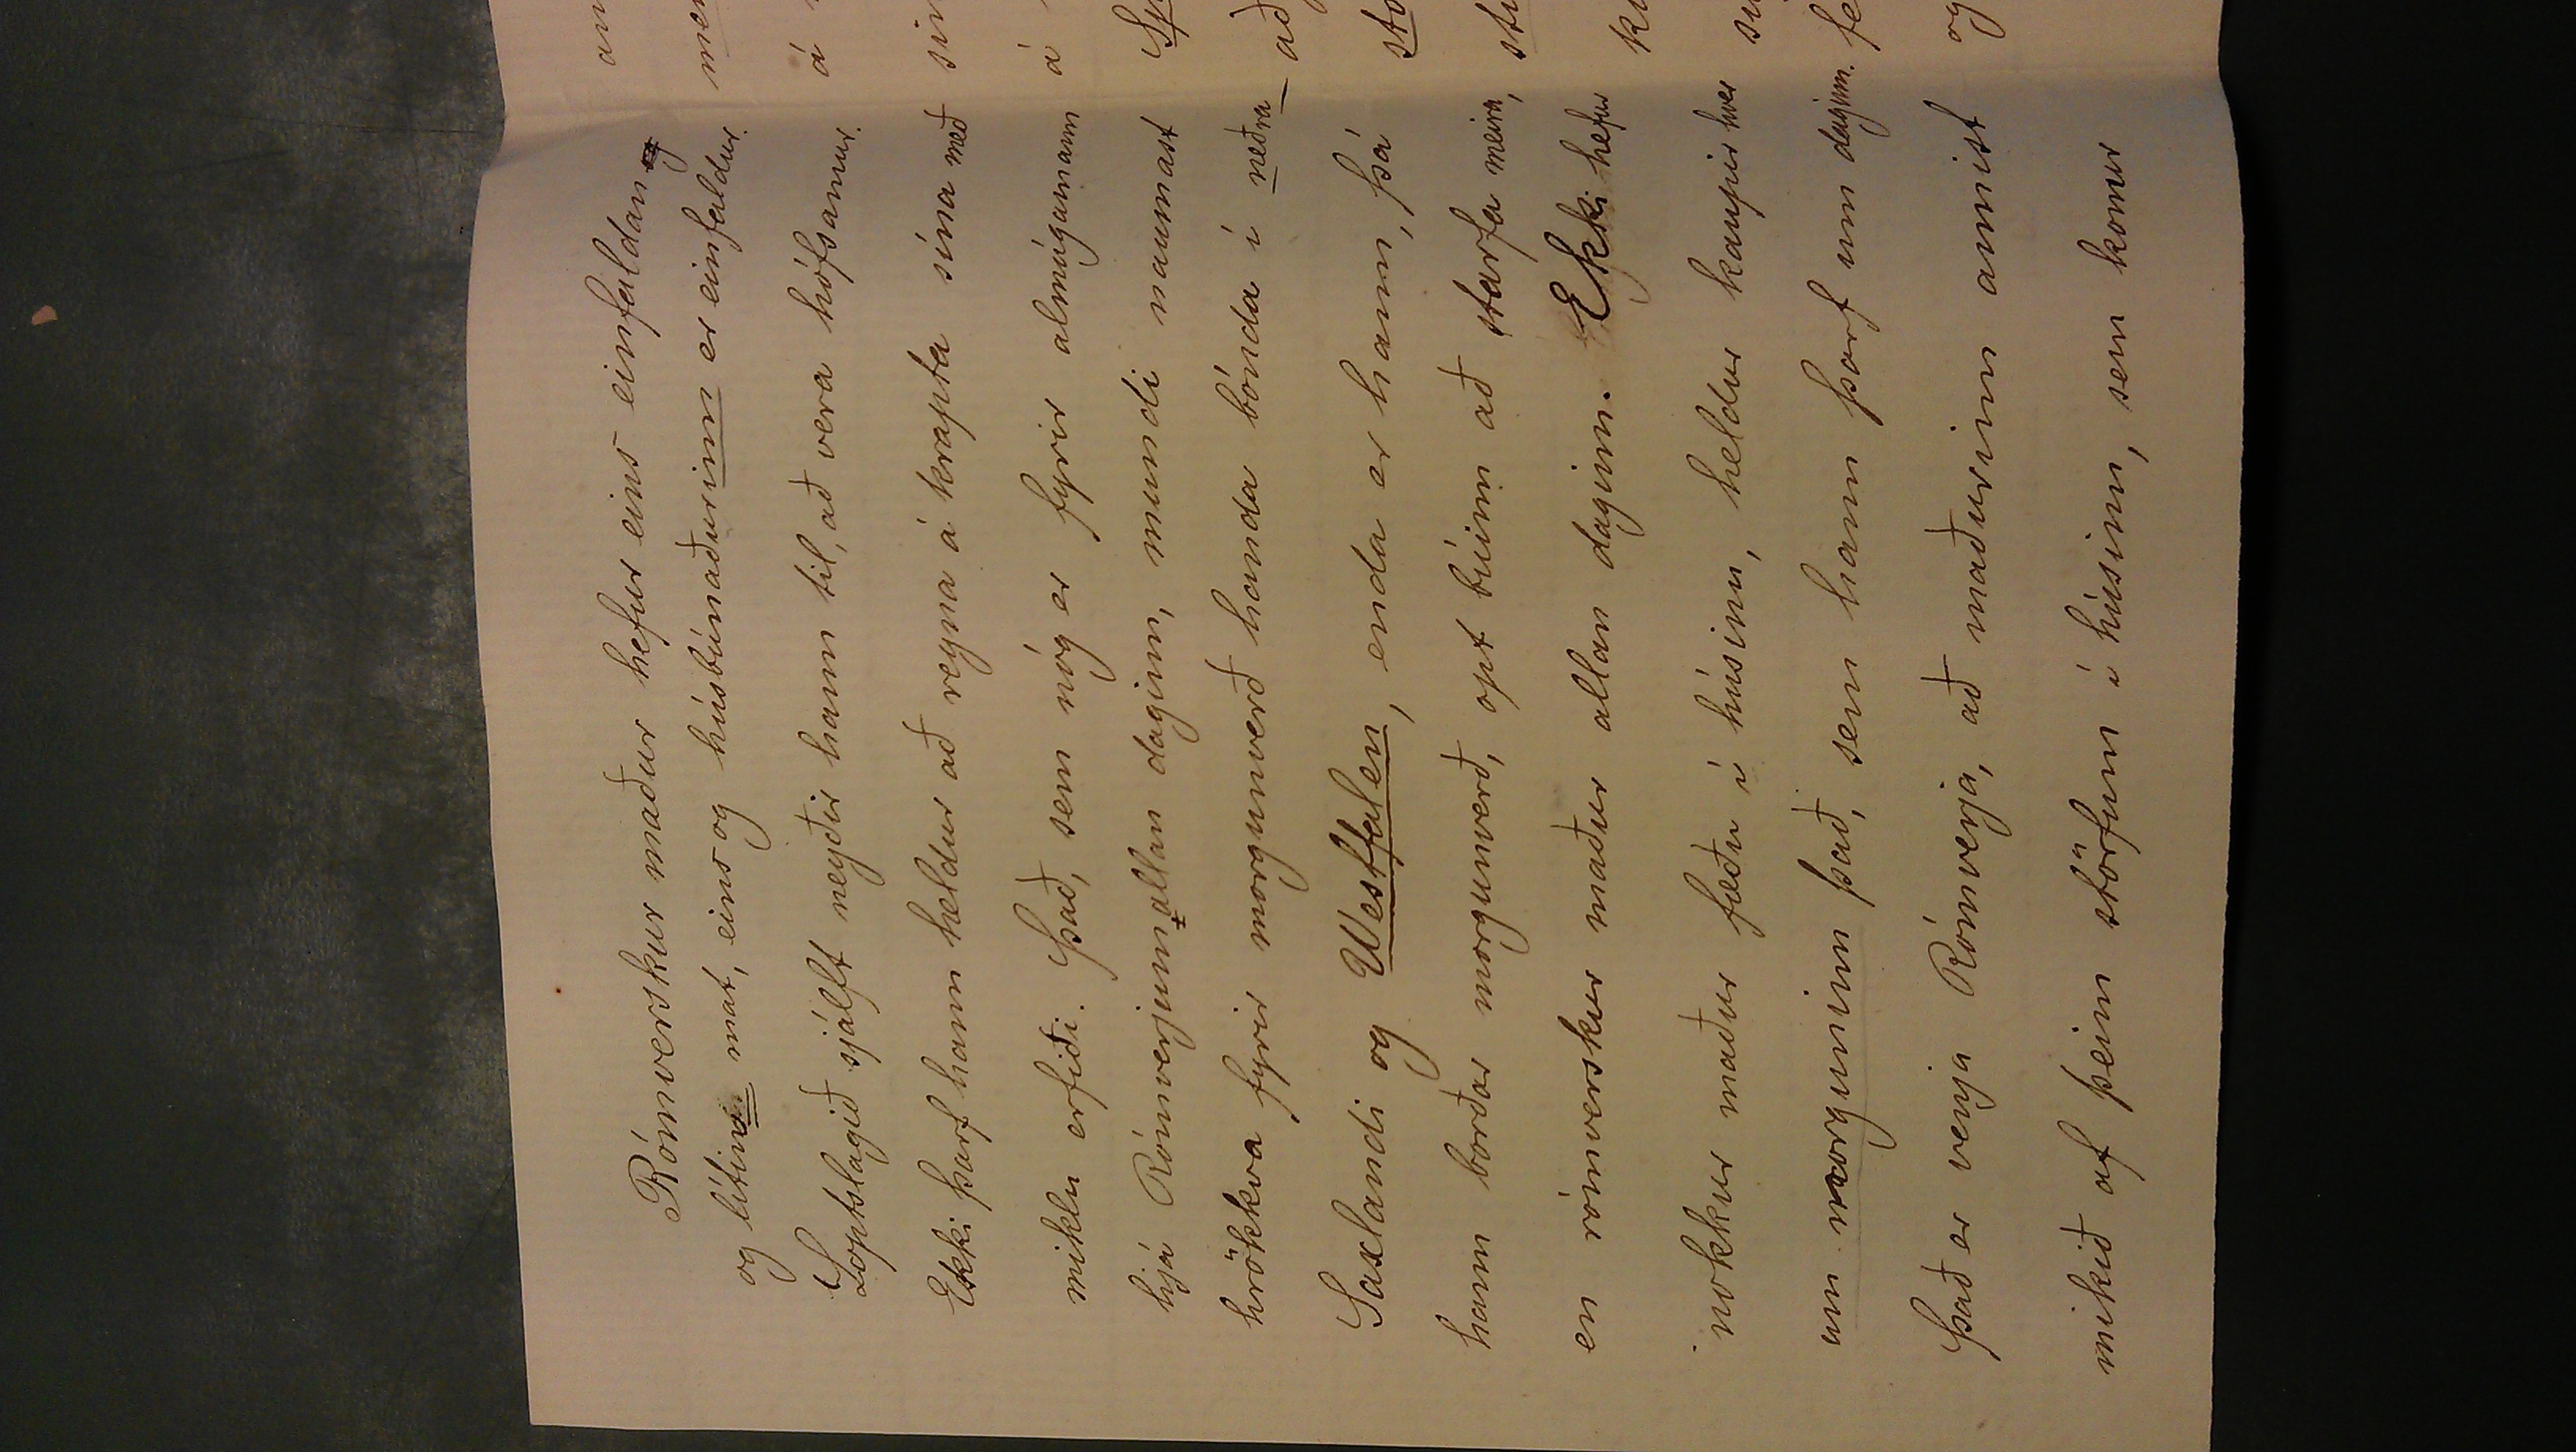 Rómverskur maður hefur eins einfaldan
og lítinn mat, eins og húsbúnaðurinn er einfaldur.
Loptslagið sjálft neyðir hann til, að vera hófsamur.
Ekki þarf hann heldur að reyna á krapta sína með
miklu erfiði. Það, sem nóg er fyrir almúgamann
hjá Rómverjum allan daginn, mundi naumast
hrökkva fyrir morgunverð handa bónda í neðra-
Saxlandi og Westfalen, enda er hann, þá
hann borðar morgunverð, opt búinn að starfa meira,
en rómverskur maður allan daginn. Ekki hefur
nokkur maður fæðu í húsinu, heldur kaupir hver
um morguninn það, sem hann þarf um daginn.
Það er venja Rómverja, að maðurinn annist
mikið af þeim störfum í húsinu, sem konur